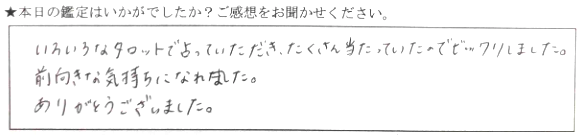 ★本日の鑑定はいかがでしたか？ご感想をお聞かせください。
いろいろなタロットで占っていただき、たくさん当たっていたのでビックリしました。
前向きな気持ちになれました。
ありがとうございました。